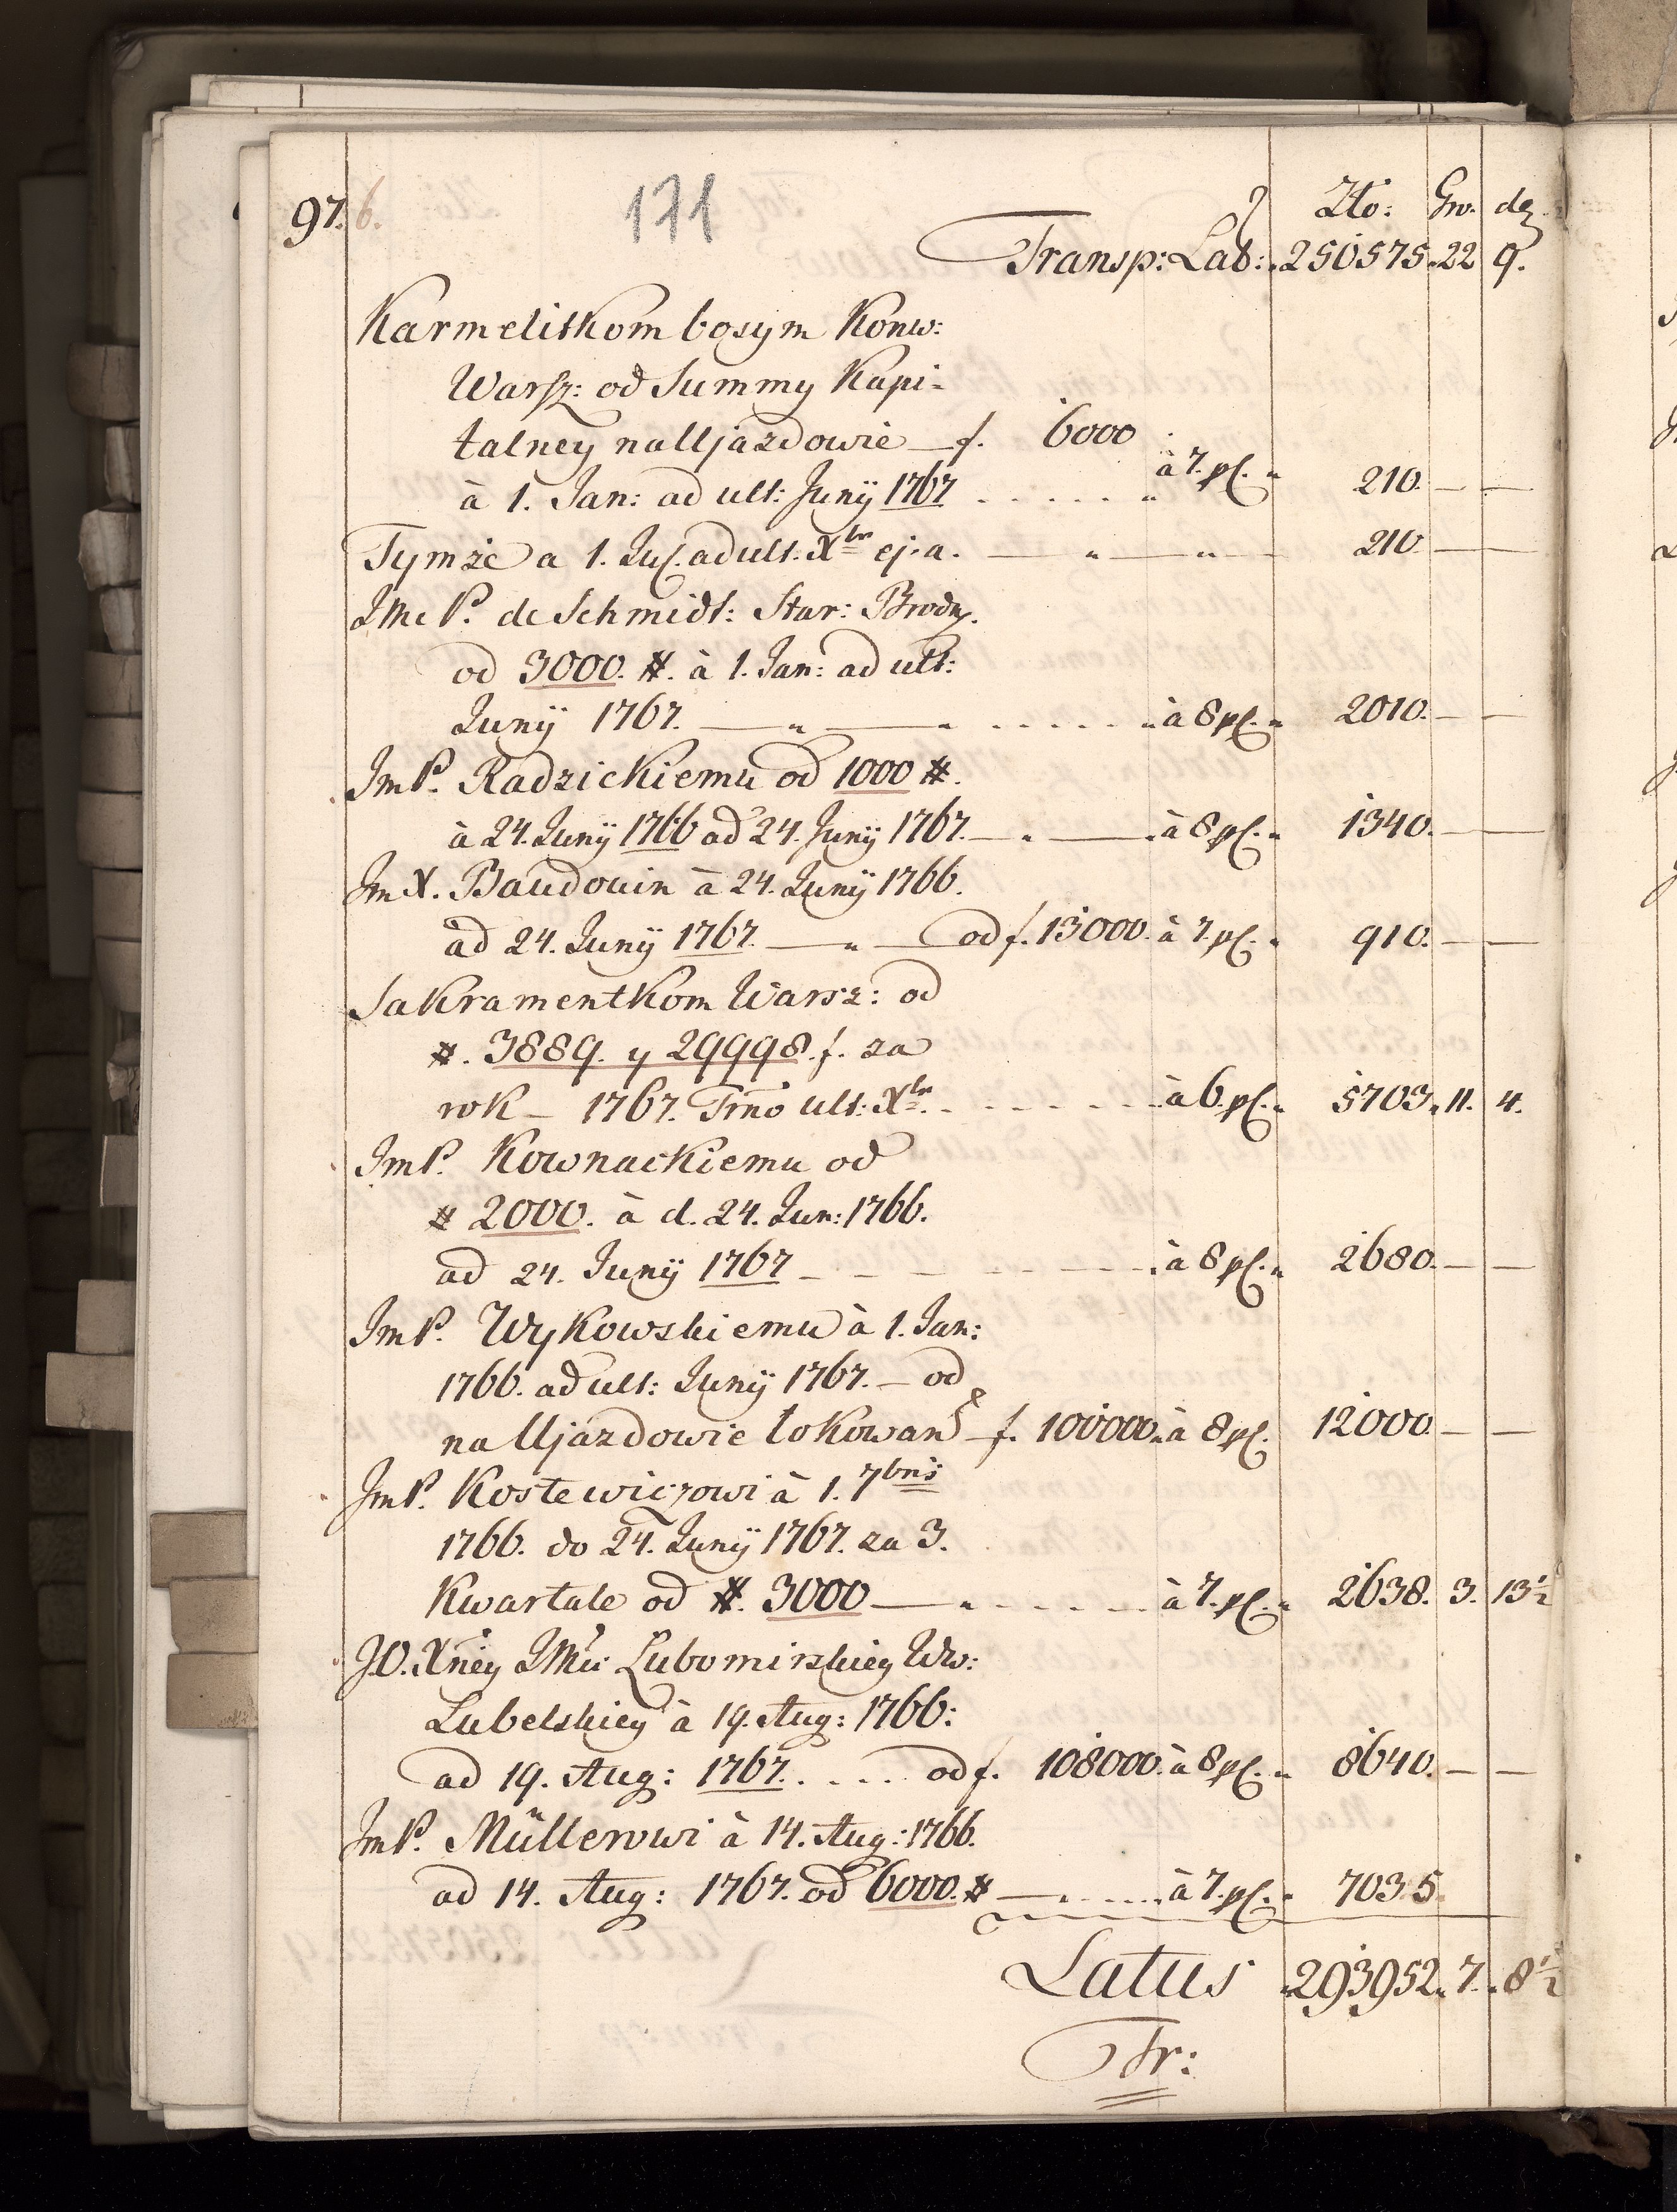 97. 6.
171
Zło: Gro. de.
Transp: Lat: 250575. 22 9.
Karmelitkom bosym Konw:
Warsz: od Summy Kapi-
talney na Ujazdowie f. 6000
à 1. Jan: ad ult: Junÿ 1767 à 7. pC. 210. — —
Tymże a 1. Jul. ad ult: Xbr ej: a. — " — " — 210 — —
JMc P. de Schmidt: Star: Brody.
od 3000. #. à 1. Jan: ad ult:
Junÿ 1767. — " — " à 8 pC. 2010. — —
JmP. Radzickiemu od 1000 #.
à 24. Junÿ 1766 ad 24. Junÿ 1767. — " — à 8 pC. 1340. — —
Jm X. Baudouin à 24. Junÿ 1766.
ad 24. Junÿ 1767. — " — od f. 13000. à 7. pC. 910. — —
Sakramentkom Warsz: od
#. 3889. y 29998. f. za
rok – 1767. Trno ult: Xbr. à 6 pC. 5703. 11. 4.
JmP. Kownackiemu od
# 2000. à d. 24. Jun: 1766.
ad 24. Junÿ 1767 à 8 pC. 2680. — —
JmP. Wykowskiemu à 1. Jan:
1766. ad ult: Junÿ 1767. – od
na Ujazdowie lokowan f. 100000. à 8 pC. 12000. — —
JmP. Kostewiczowi à 1. 7bris
1766. do 24. Junÿ 1767. za 3.
Kwartale od #. 3000 — " à 7. pC. 2638. 3. 13½
JO. Xney JMci Lubomirskiey Ww:
Lubelskiey à 19. Aug: 1766:
ad 19. Aug: 1767. . . . . od f. 108000. à 8 pC. 8640. — —
JmP. Müllerowi à 14. Aug: 1766.
ad 14. Aug: 1767. od 6000. # — à 7. pC. 7035.
Latus 293952. 7. 8½
Tr: